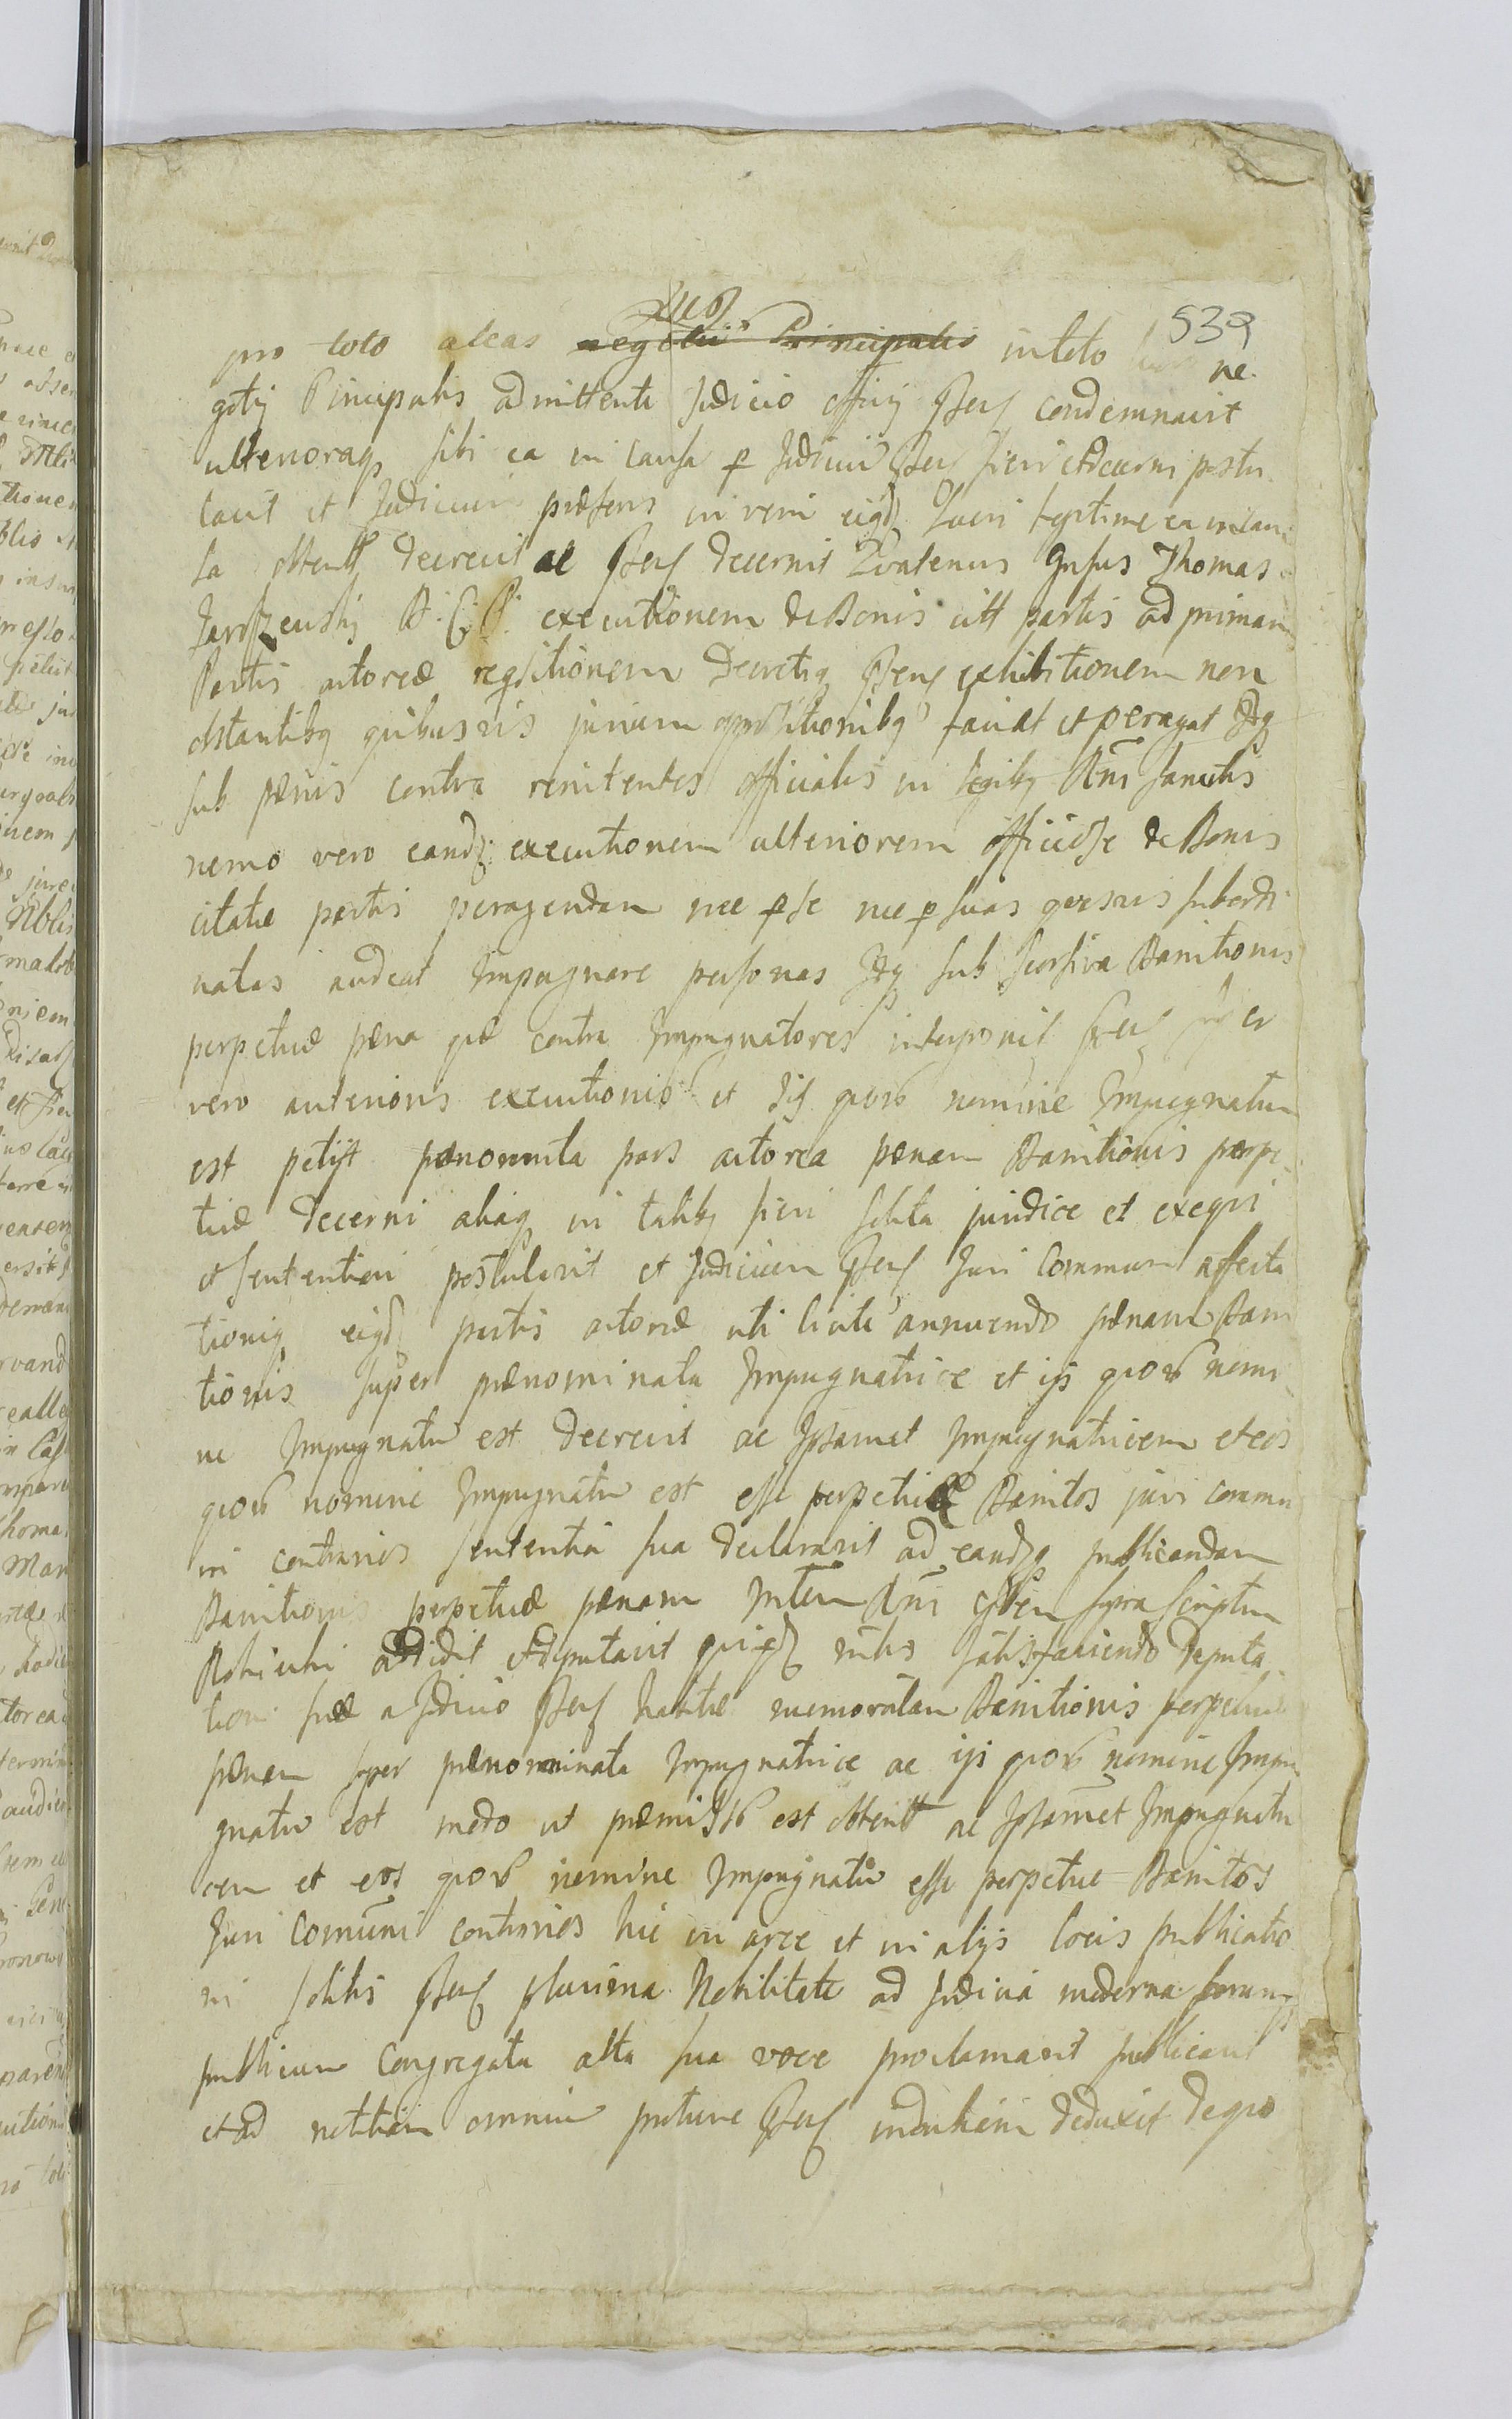 539
suo
pro toto aleas negotii Principalis in toto ne
gotij Principalis admittente Judicio officij Psens condemnavit
ulterioraq sibi ea in causa p Judicium Pseus fieri et decerni postu
lavit et Judicium præsens in rem eigd Lucri legitime ea in cau
sa obtenti decrevit ac Pseus decernit Quatenus Gnsus Thomas
Jarszewskij B. C. P. executionem de Bonis citt partis ad primam
Partis actoreæ reqsitionem Decretiq Psens exhibitionem non
obstantibq quibusvis jurium oppositionibq faciat et peragat Idq
sub pænis contra renitentes officiales in legibq Rni sancitis
nemo vero eandq executionem ulteriorem officiose de Bonis
citatæ partis peragendam nec p se nec p suas quasvis subordi
natas audeat Impugnare personas Idq sub seorsiva Banitionis
perpetuæ pæna quæ contra Impugnatores interponit Pseus
vero anterioris executionis et iis quor nomine Impugnatum
est petijt prænominata pars actorea pænam Banitionis perpe
tuæ decerni aliaq in talibq fieri solita juridice et exeqvi
et sententiari postulavit et Judicium Pseus Juri Communi affecta
tioniq eigd partis actoreæ uti licitæ annuendo pænam Bani
tionis super prænominata Impugnatrice et ijs quor nomi
ne Impugnatu est decrevit ac Ipsamet Impugnatricem et eos
quor nomine Impugnatu est esse perpetuæ Banitos juri commu
ni contrarios sententia sua declaravit ad eandq publicandam
Banitionis perpetuæ pænam Mtem Rni Gnlem supra scriptum
Rohicki addidit et deputavit qui qd muis satisfaciendo deputa
tioni suæ a Judicio Pseus habitæ memoratam Banitionis perpetuæ
pænam super prænominata Impugnatrice ac ijs quor nomine Impu
gnatu est modo ut præmissu est obtent ac Ipsamet Impugnatri
cem et eos quor nomine Impugnatu esse perpetue Banitos
Juri Comuni contrarios hic in arce et in alijs locis publicatio
ni solitis Pseus plurima Nobilitate ad Judicia moderna forumq
publicum congregata alta sua voce proclamavit publicavit
et ad notitiam omnium deduxit de quo